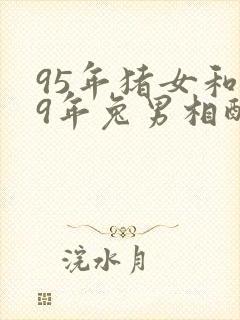 95年猪女和
9年兔男相酉
浣水月